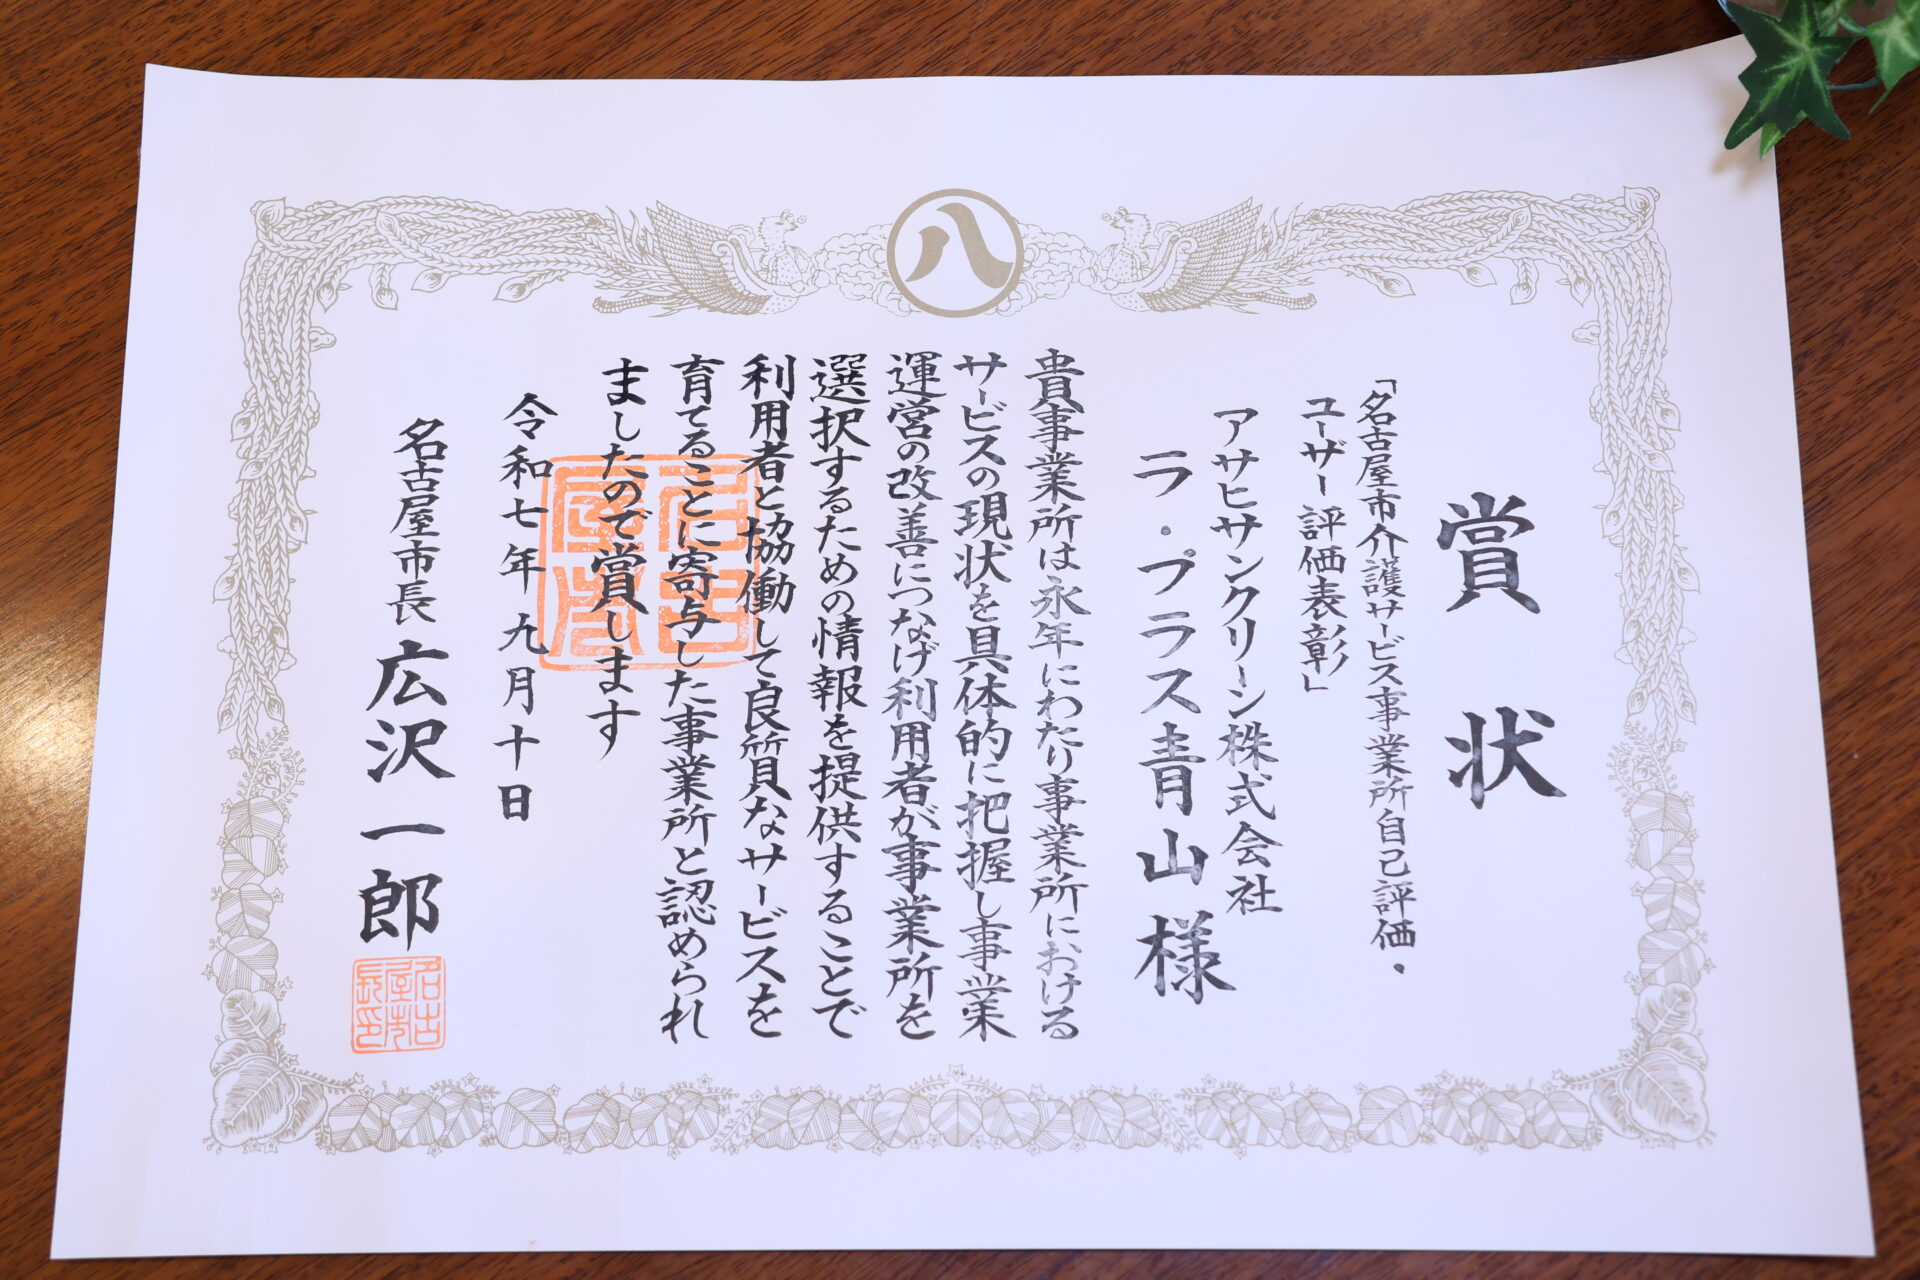 八
賞状
「名古屋市介護サービス事業所自己評価・
ユーザー評価表彰」
アサヒサンクリーン株式会社
ラ・プラス青山様
貴事業所は永年にわたり事業所における
サービスの現状を具体的に把握し事業
運営の改善につなげ利用者が事業所を
選択するための情報を提供することで
利用者と協働して良質なサービスを
育てることに寄与した事業所と認められ
ましたので賞します
令和七年九月十日
名古屋市長 広沢一郎